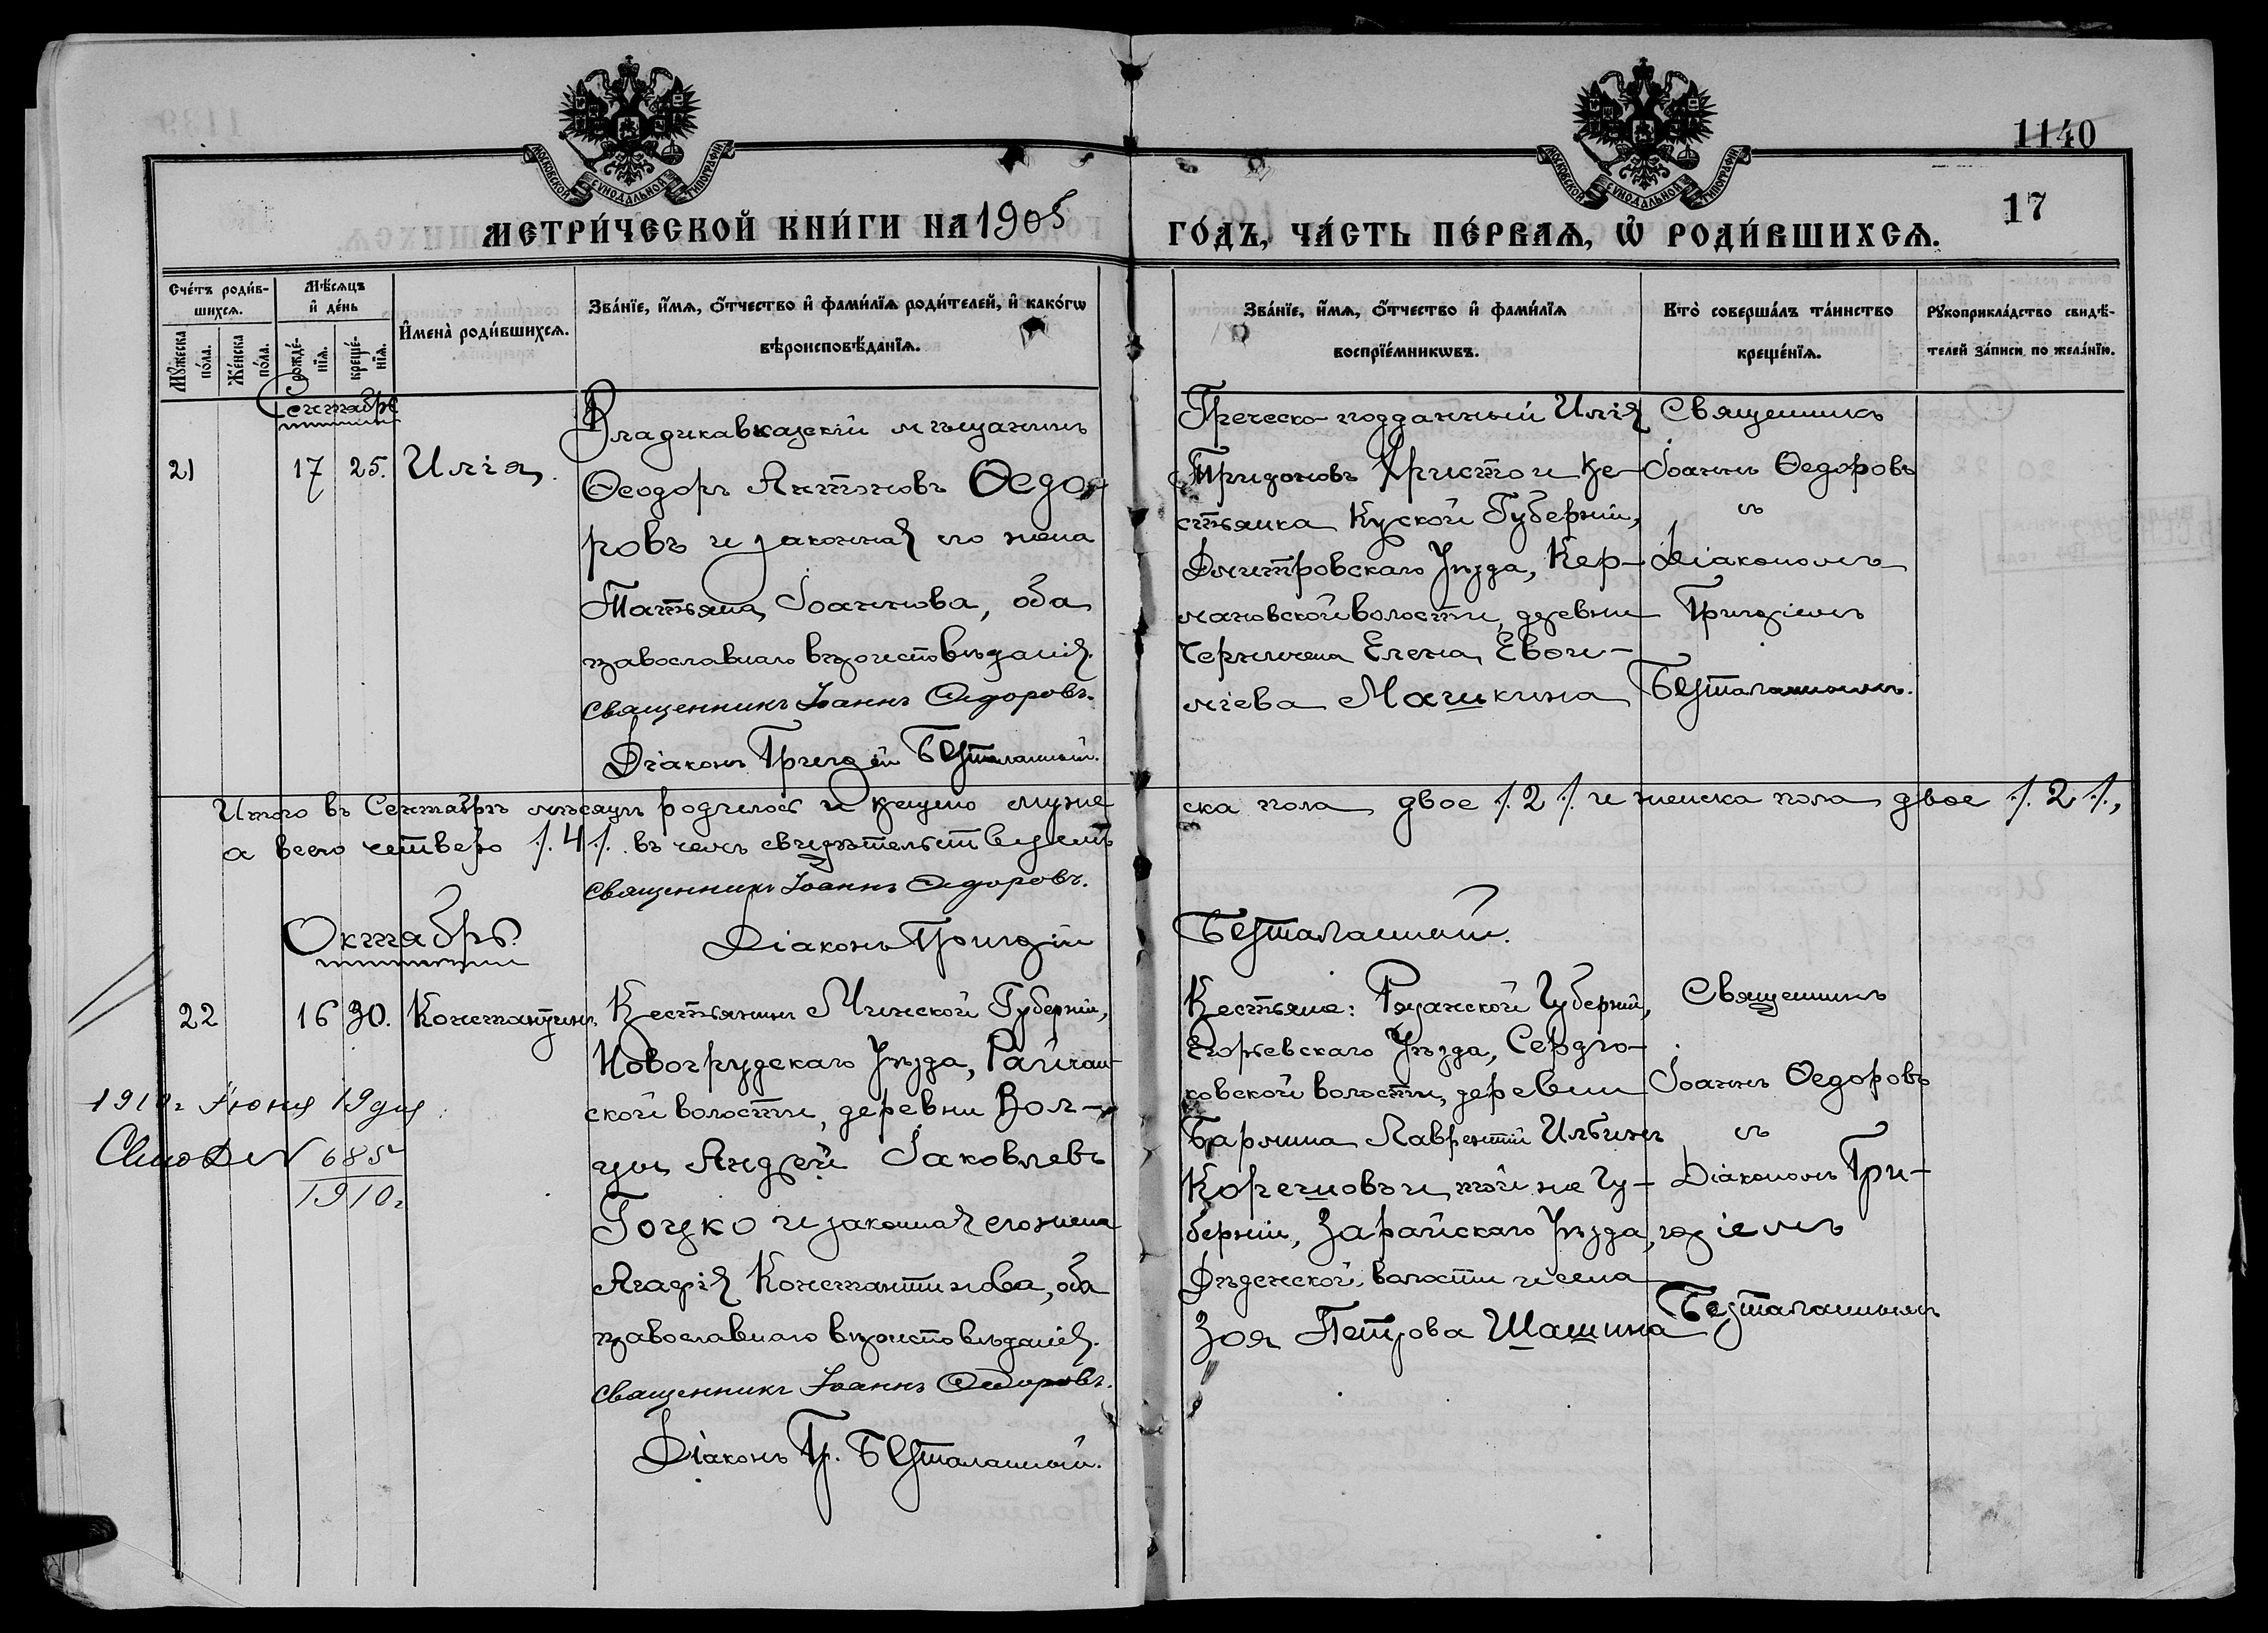 1140
17
МОСКОВСКОЙ СѴНОДАЛЬНОЙ ТИПОГРАФІИ
МОСКОВСКОЙ СѴНОДАЛЬНОЙ ТИПОГРАФІИ
МЕТРИ́ЧЕСКОЙ КНИ́ГИ НА 1905
ГО́ДЪ, ЧА́СТЬ ПЕ́РВАѦ, Ѡ҆ РОДИ́ВШИХСѦ.
Сче́тъ роди́в-
шихсѧ.
Мꙋ́жеска
по́ла.
Же́нска
по́ла.
Мѣ́сѧцъ
и҆ де́нь
рожде́-
нїѧ.
креще́-
нїѧ.
И҆мена̀ роди́вшихсѧ.
Зва́нїе, и҆́мѧ, ѻ҆́тчество и҆ фами́лїѧ роди́телей, и҆ како́гѡ
вѣроисповѣ́данїѧ.
Зва́нїе, и҆́мѧ, ѻ҆́тчество и҆ фами́лїѧ
воспрїе́мникѡвъ.
Кто̀ соверша́лъ та́инство
креще́нїѧ.
Рꙋкоприкла́дство свидѣ́-
телей за́писи по жела́нїю.
Сентябрь
21
17
25.
Илія.
Владикавказскій мѣщанинъ
Ѳеодоръ Антоновъ Ѳедо-
ровъ и законная его жена
Татьяна Іоаннова, оба
православнаго вѣроисповѣданія.
Священникъ Іоаннъ Ѳедоровъ.
Діаконъ Григорій Безталанный.
Греческо-подданный Илія
Тридоновъ Христо и кре-
стьянка Курской Губерніи,
Дмитровскаго Уѣзда, Кер-
мановской волости, деревни
Елена Евфи-
міева Машкина
Священникъ
Іоаннъ Ѳедоровъ
съ
Діакономъ
Григоріемъ
Безталаннымъ.
Итого въ Сентябрѣ мѣсяцѣ родилось и крещено муже
ска пола двое /.2./. и женска пола двое /.2./.,
а всего четверо /.4./. въ чемъ свидѣтельствуемъ
Священникъ Іоаннъ Ѳедоровъ.
Діаконъ Григорій
Безталанный.
Октябрь
22
16
30.
Константинъ
Крестьянинъ Минской Губерніи,
Новогрудскаго Уѣзда, Райчан-
ской волости, деревни Вол-
Андрей Іаковлевъ
Гоцко и законная его жена
Агафія Константинова, оба
православнаго вѣроисповѣданія.
Священникъ Іоаннъ Ѳедоровъ.
Діаконъ Гр. Безталанный.
Крестьяне: Рязанской Губерніи,
Егорьевскаго Уѣзда, Сердю-
ковской волости, деревни
Лаврентій Ильинъ
и той же Гу-
берніи, Зарайскаго Уѣзда,
волости и села
Зоя Петрова Шашина
Священникъ
Іоаннъ Ѳедоровъ
съ
Діакономъ Гри-
горіемъ
Безталаннымъ
1910г Іюня 19 дня
№ 685
1910г